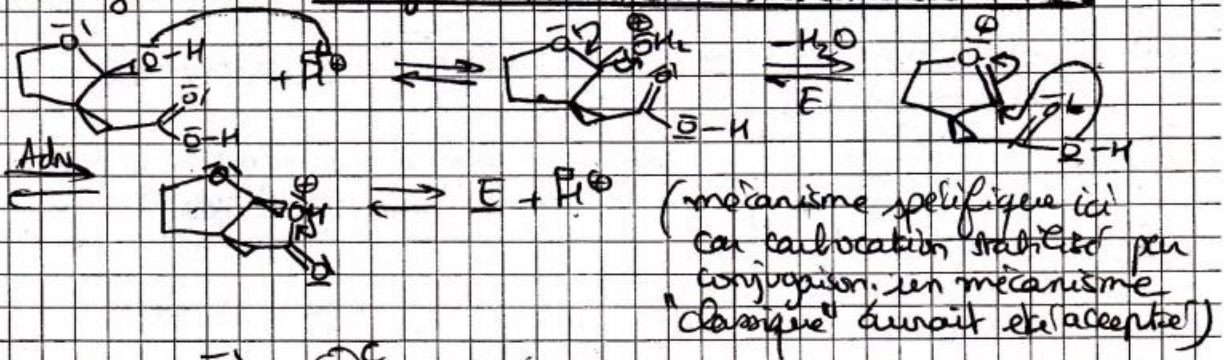 O O-H + H⊕ ⇌ O ⊕OH₂ O O-H -H₂O ⇌ E O⊕ O O-H
O O-H
AdN ⇌ O ⊕OH O ⇌ E + H⊕ (mécanisme spécifique ici
car carbocation stabilisé par
conjugaison. un mécanisme
"classique" aurait été accepté)